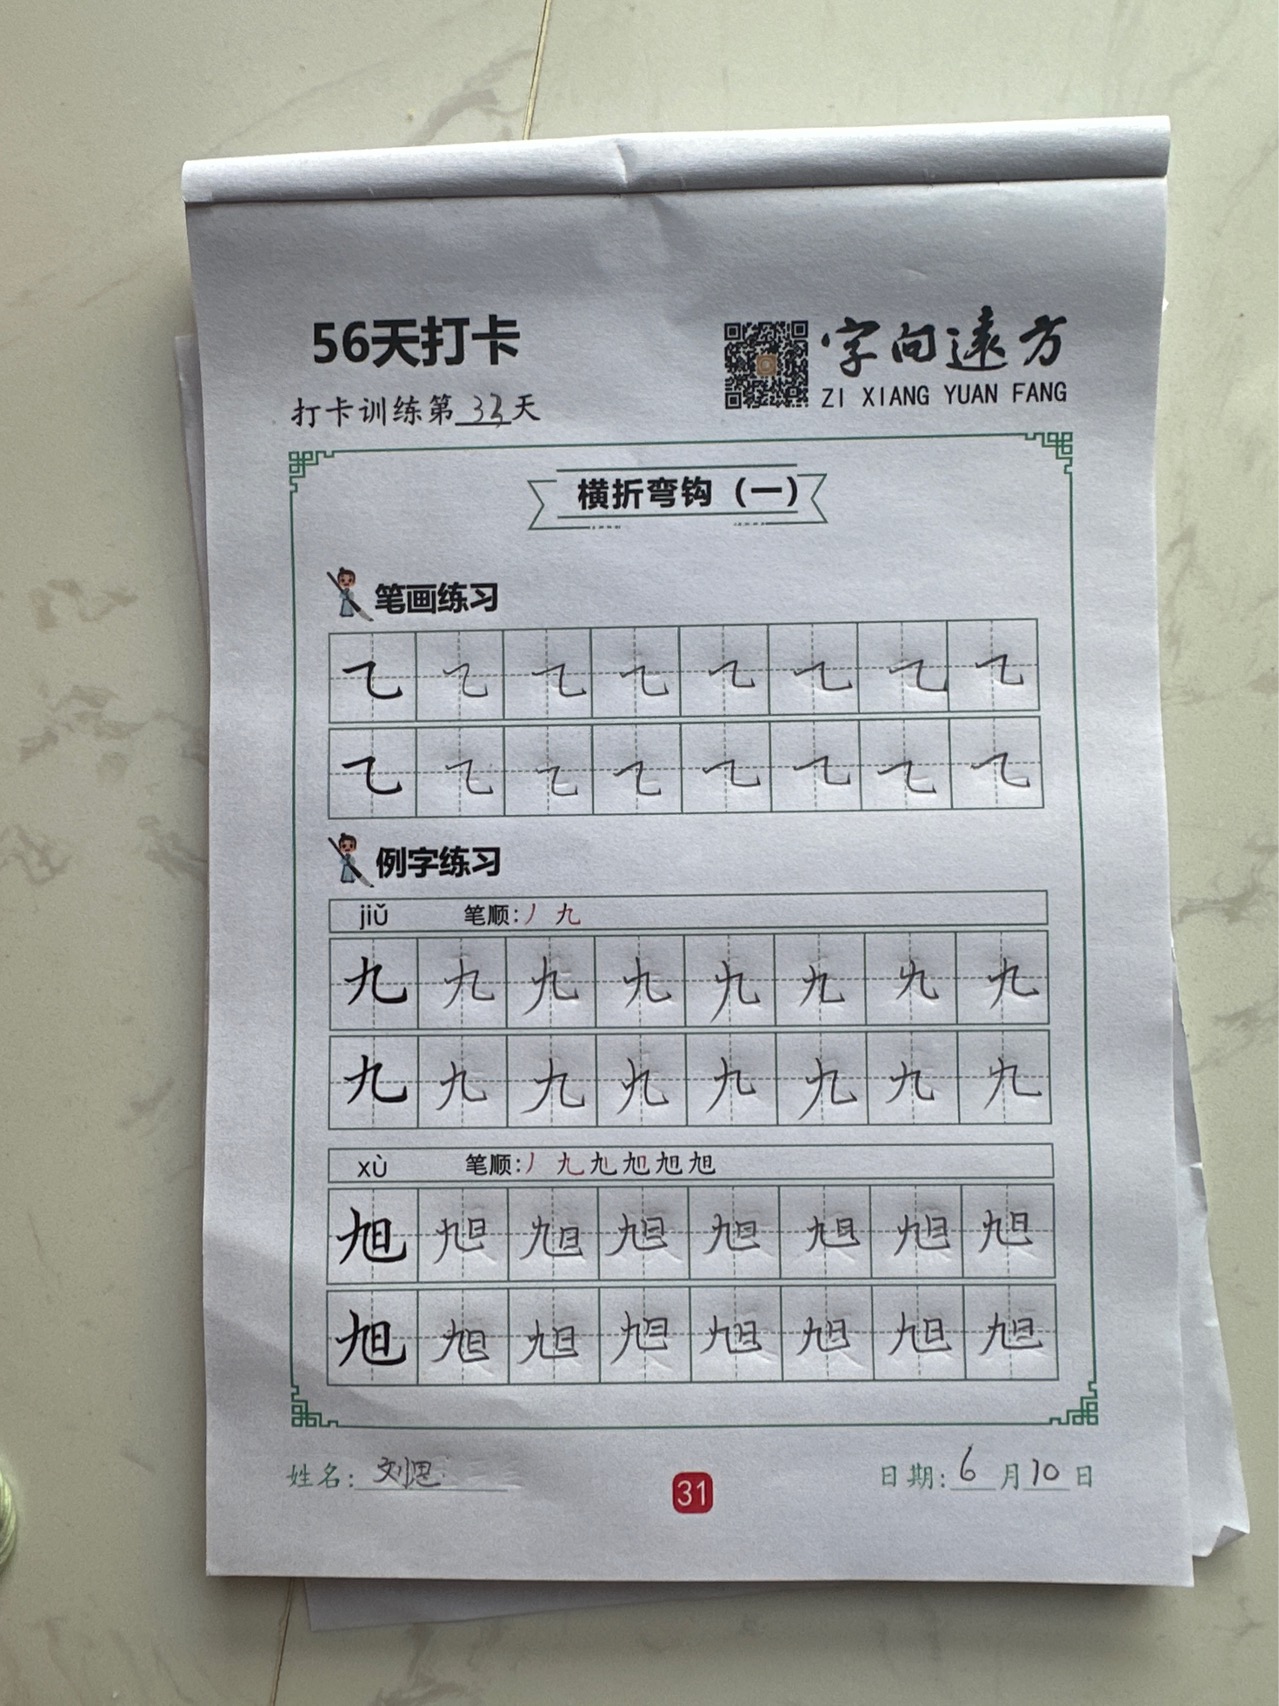 56天打卡
字向遠方
ZI XIANG YUAN FANG
打卡训练第33天
横折弯钩（一）
笔画练习
㇍ ㇍ ㇍ ㇍ ㇍ ㇍ ㇍ ㇍
㇍ ㇍ ㇍ ㇍ ㇍ ㇍ ㇍ ㇍
例字练习
jiǔ 笔顺：丿 九
九 九 九 九 九 九 九 九
九 九 九 九 九 九 九 九
xù 笔顺：丿 九 九 旭 旭 旭
旭 旭 旭 旭 旭 旭 旭 旭
旭 旭 旭 旭 旭 旭 旭 旭
姓名：刘恩
31
日期：6月10日